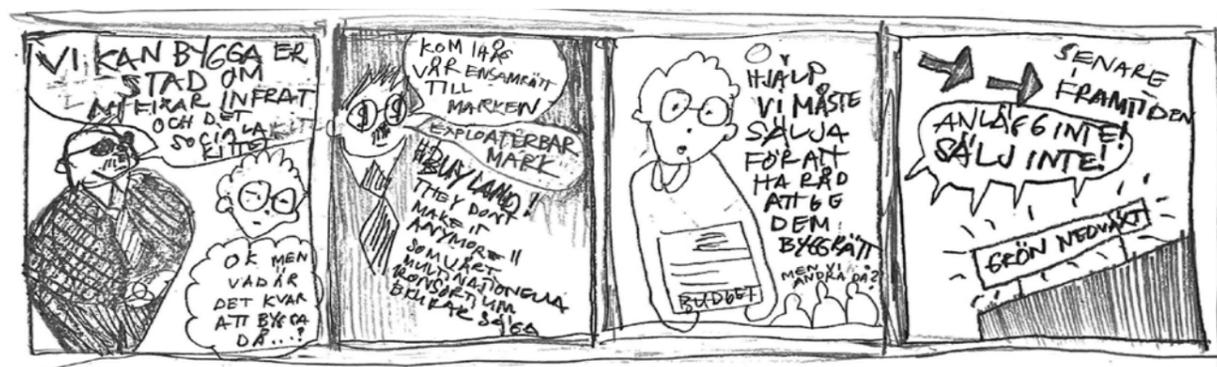 VI KAN BYGGA ER
STAD OM
NI FIXAR INFRAT
OCH DET
SOCIALA
KITTET
OK MEN
VAD ÄR
DET KVAR
ATT BYGGA
DÅ...?
KOM IHÅG
VÅR ENSAMRÄTT
TILL
MARKEN
EXPLOATERBAR
MARK
"BUY LAND!
THEY DONT
MAKE IT
ANYMORE"
SOM VÅRT
MULTINATIONELLA
KONSORTIUM
BRUKAR SÄGA
HJÄLP
VI MÅSTE
SÄLJA
FÖR ATT
HA RÅD
ATT GE
DEM
BYGGRÄTT
MEN VI
ANDRA DÅ?
BUDGET
SENARE
I FRAMTIDEN
ANLÄGG INTE!
SÄLJ INTE!
GRÖN NEDVÄXT